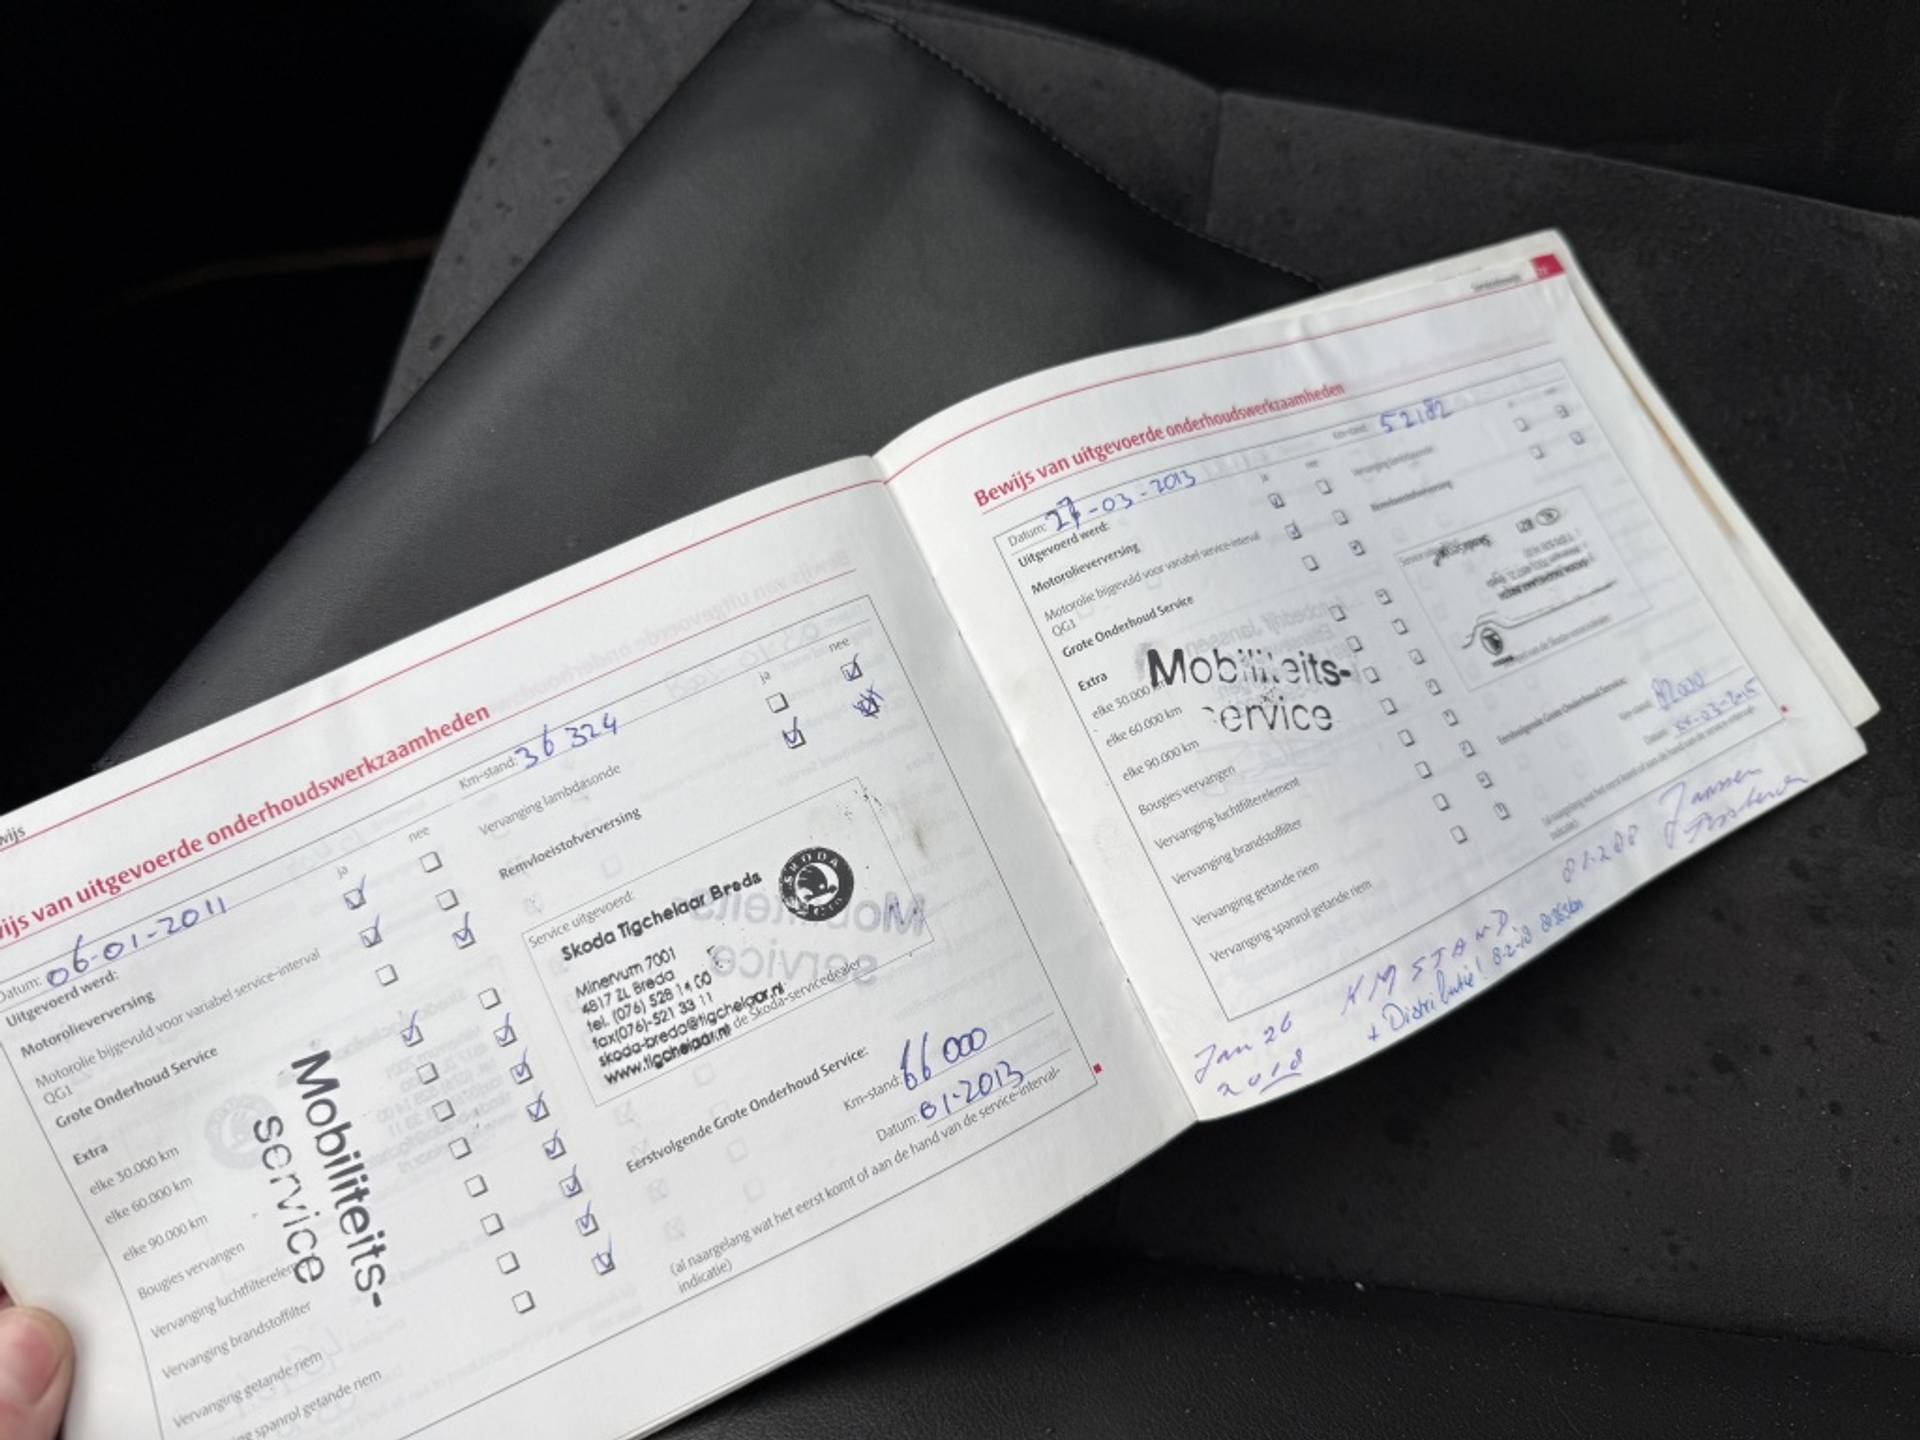 wijs
ijs van uitgevoerde onderhoudswerkzaamheden
Datum: 06-01-2011
Km-stand: 36 324
Uitgevoerd werd:
ja nee
Motorolieverversing
Motorolie bijgevuld voor variabel service-interval
QG1
Grote Onderhoud Service
Extra
elke 30.000 km
elke 60.000 km
elke 90.000 km
Bougies vervangen
Vervanging luchtfilterelem
Vervanging brandstoffilter
Vervanging getande riem
ing spanrol getande riem
Mobiliteits-
service
ja nee
Vervanging lambdasonde
Remvloeistofverversing
Service uitgevoerd:
Skoda Tigchelaar Breda
SKODA
Minervum 7001
4817 ZL Breda
tel. (076) 528 14 00
fax(076)-521 33 11
skoda-breda@tigchelaar.nl
www.tigchelaar.nl
de Skoda-servicedealer
Eerstvolgende Grote Onderhoud Service:
Km-stand: 66 000
Datum: 01-2013
(al naargelang wat het eerst komt of aan de hand van de service-interval-
indicatie)
Bewijs van uitgevoerde onderhoudswerkzaamheden
Datum: 27-03-2013
Km-stand: 52182
Uitgevoerd werd:
ja nee
Motorolieverversing
Motorolie bijgevuld voor variabel service-interval
QG1
Grote Onderhoud Service
Extra
elke 30.000 km
elke 60.000 km
elke 90.000 km
Bougies vervangen
Vervanging luchtfilterelement
Vervanging brandstoffilter
Vervanging getande riem
Vervanging spanrol getande riem
Mobiliteits-
service
Vervanging lambdasonde
Remvloeistofverversing
Eerstvolgende Grote Onderhoud Service:
Km-stand: 82000
Datum:
indicatie)
Jan 26 KM STAND. 81.288 Janssen
2018 + Distributie! 8-2-18